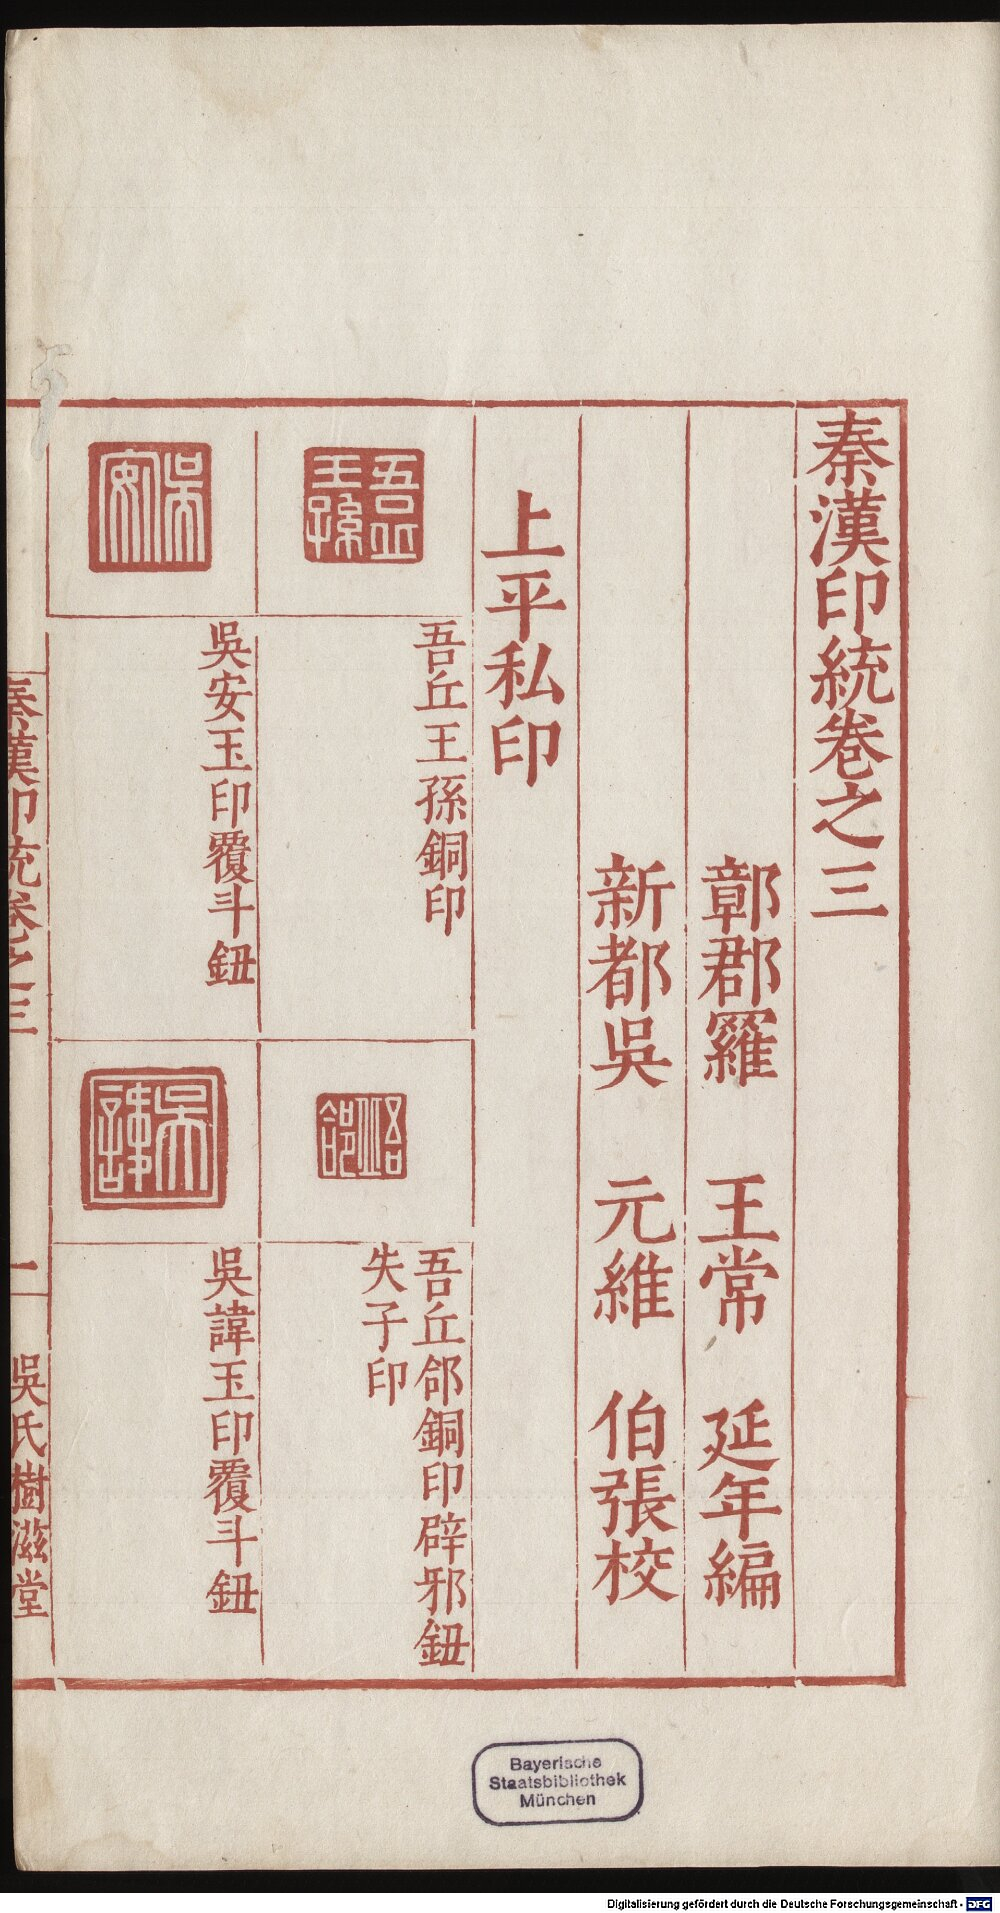 秦漢印統卷之三
鄣郡羅 王常 延年編
新都吳 元維 伯張校
上平私印
吾丘王孫
吾丘王孫銅印
吾丘郃
吾丘郃銅印辟邪鈕
失子印
吳安
吳安玉印覆斗鈕
吳諱
吳諱玉印覆斗鈕
秦漢印統卷之三
二
吳氏樹滋堂
Bayerische
Staatsbibliothek
München
Digitalisierung gefördert durch die Deutsche Forschungsgemeinschaft - DFG